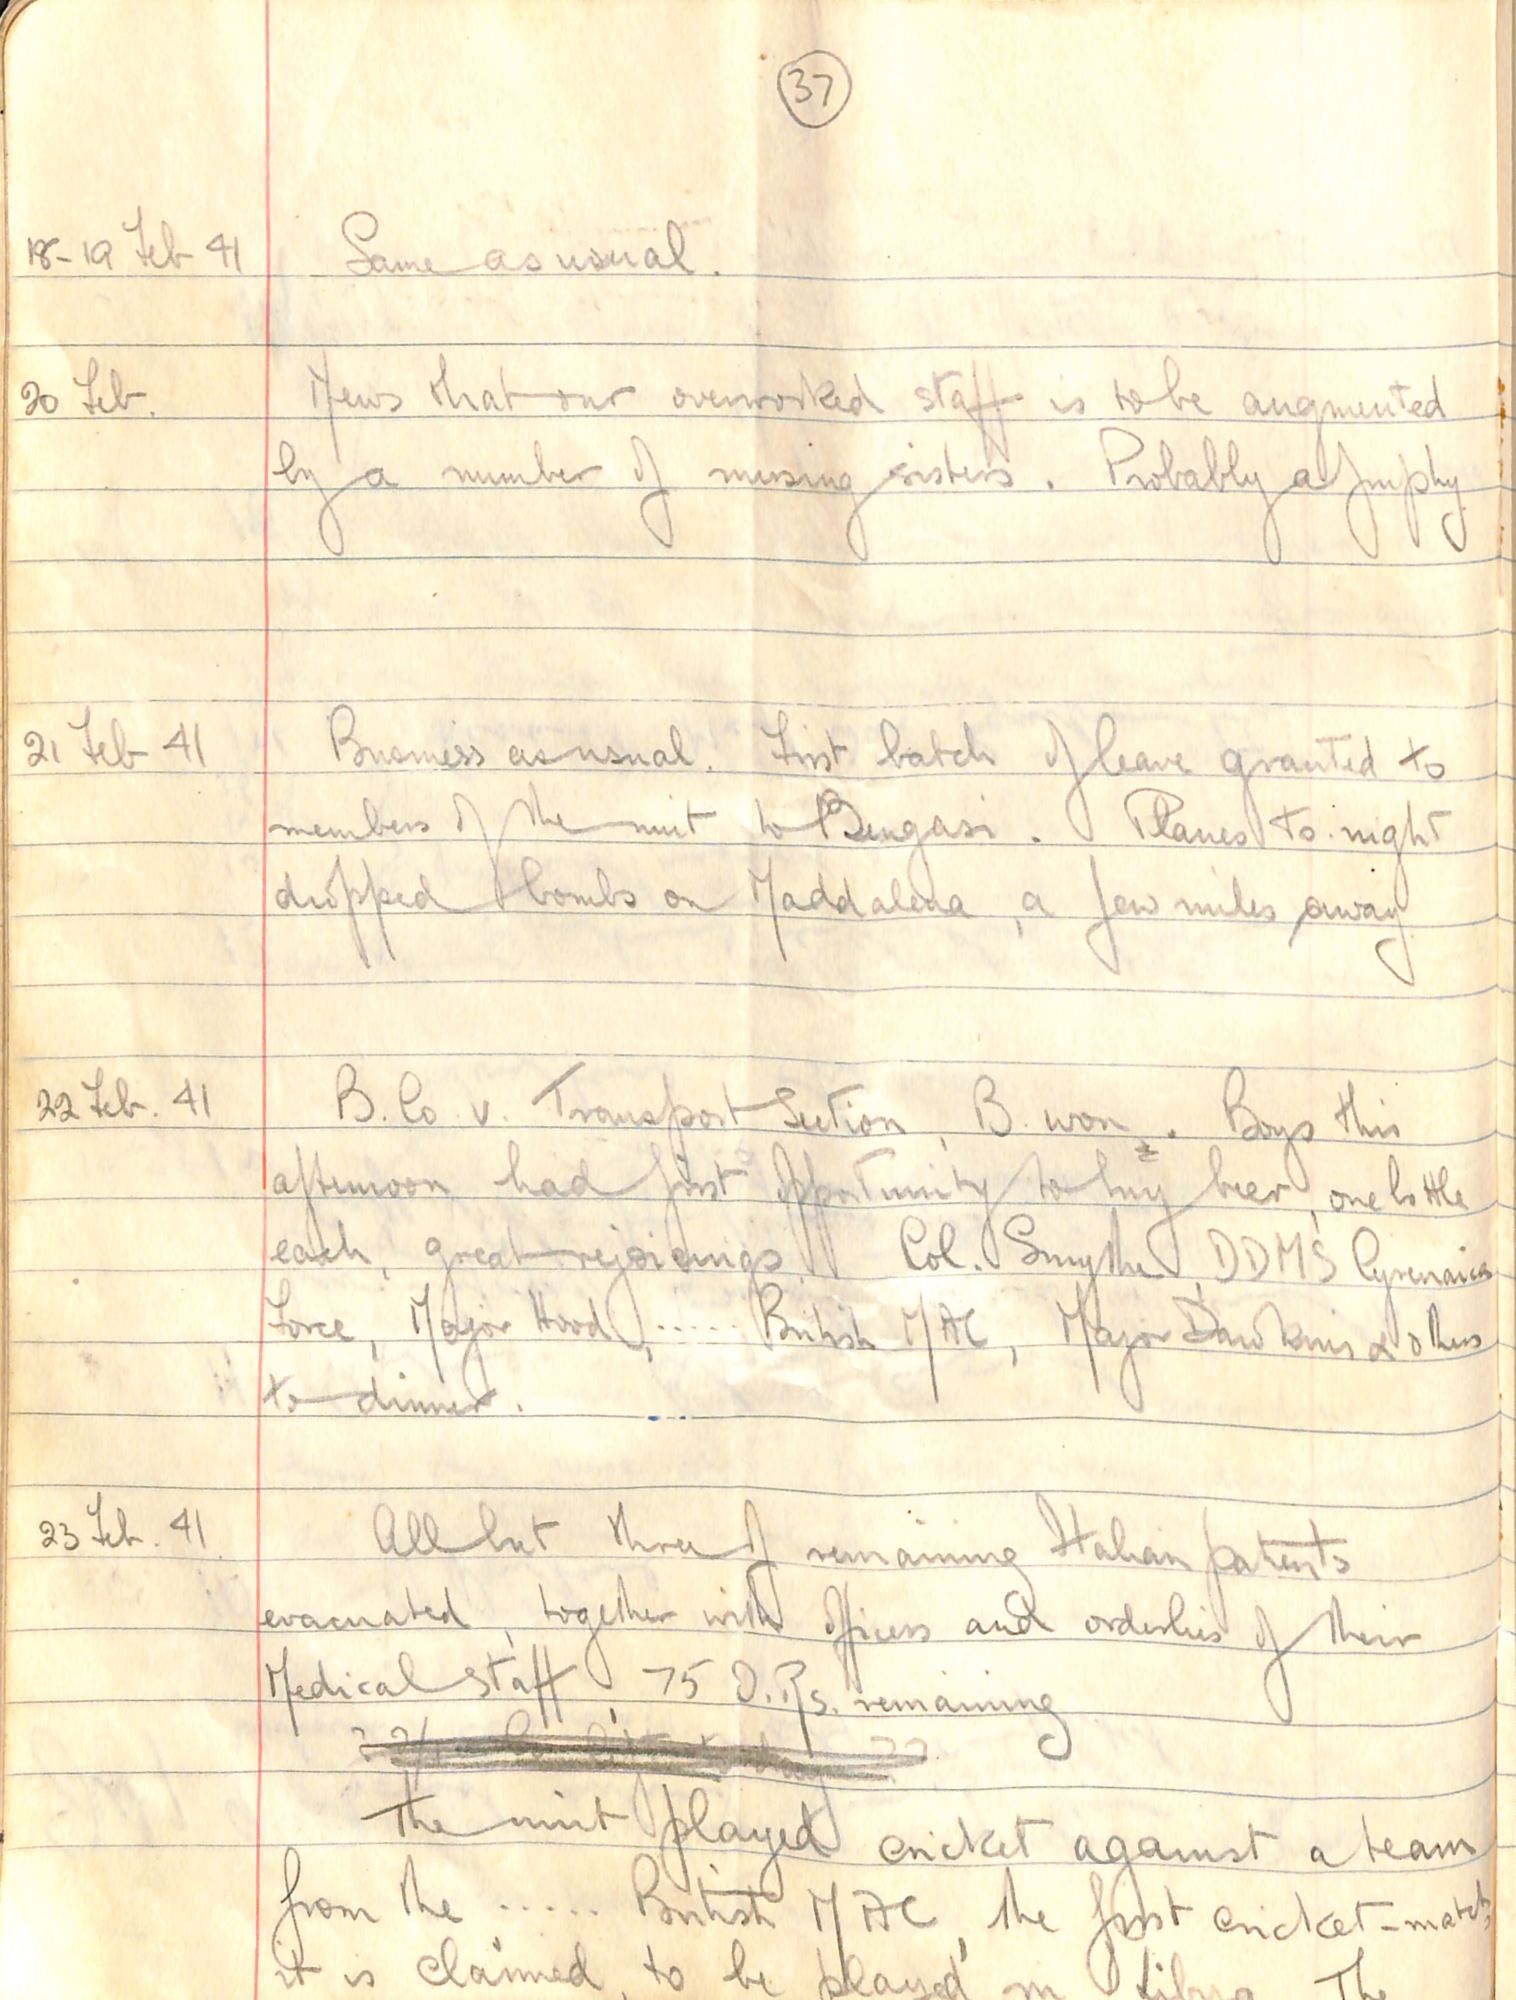 37
18-19 Feb 41 Same as usual.
20 Feb. News that our overworked staff is to be augmented
by a number of nursing sisters. Probably a furphy
21 Feb 41 Business as usual. First batch of leave granted to
members of the unit to Bengasi. Planes to-night
dropped bombs on Maddalena, a few miles away
22 Feb. 41 B. Co v. Transport Section, B. won. Boys this
afternoon had first opportunity to buy beer, one bottle
each, great rejoicings. Col. Smythe, DDMS Cyrenaica
Force, Major Hood, ..... British MAC, Major Dawkins & others
to dinner.
23 Feb. 41 All but three of remaining Italian patients
evacuated, together with officers and orderlies of their
Medical staff, 75 O.Rs. remaining
The unit played cricket against a team
from the ..... British MAC, the first cricket-match,
it is claimed, to be played in Libya. The